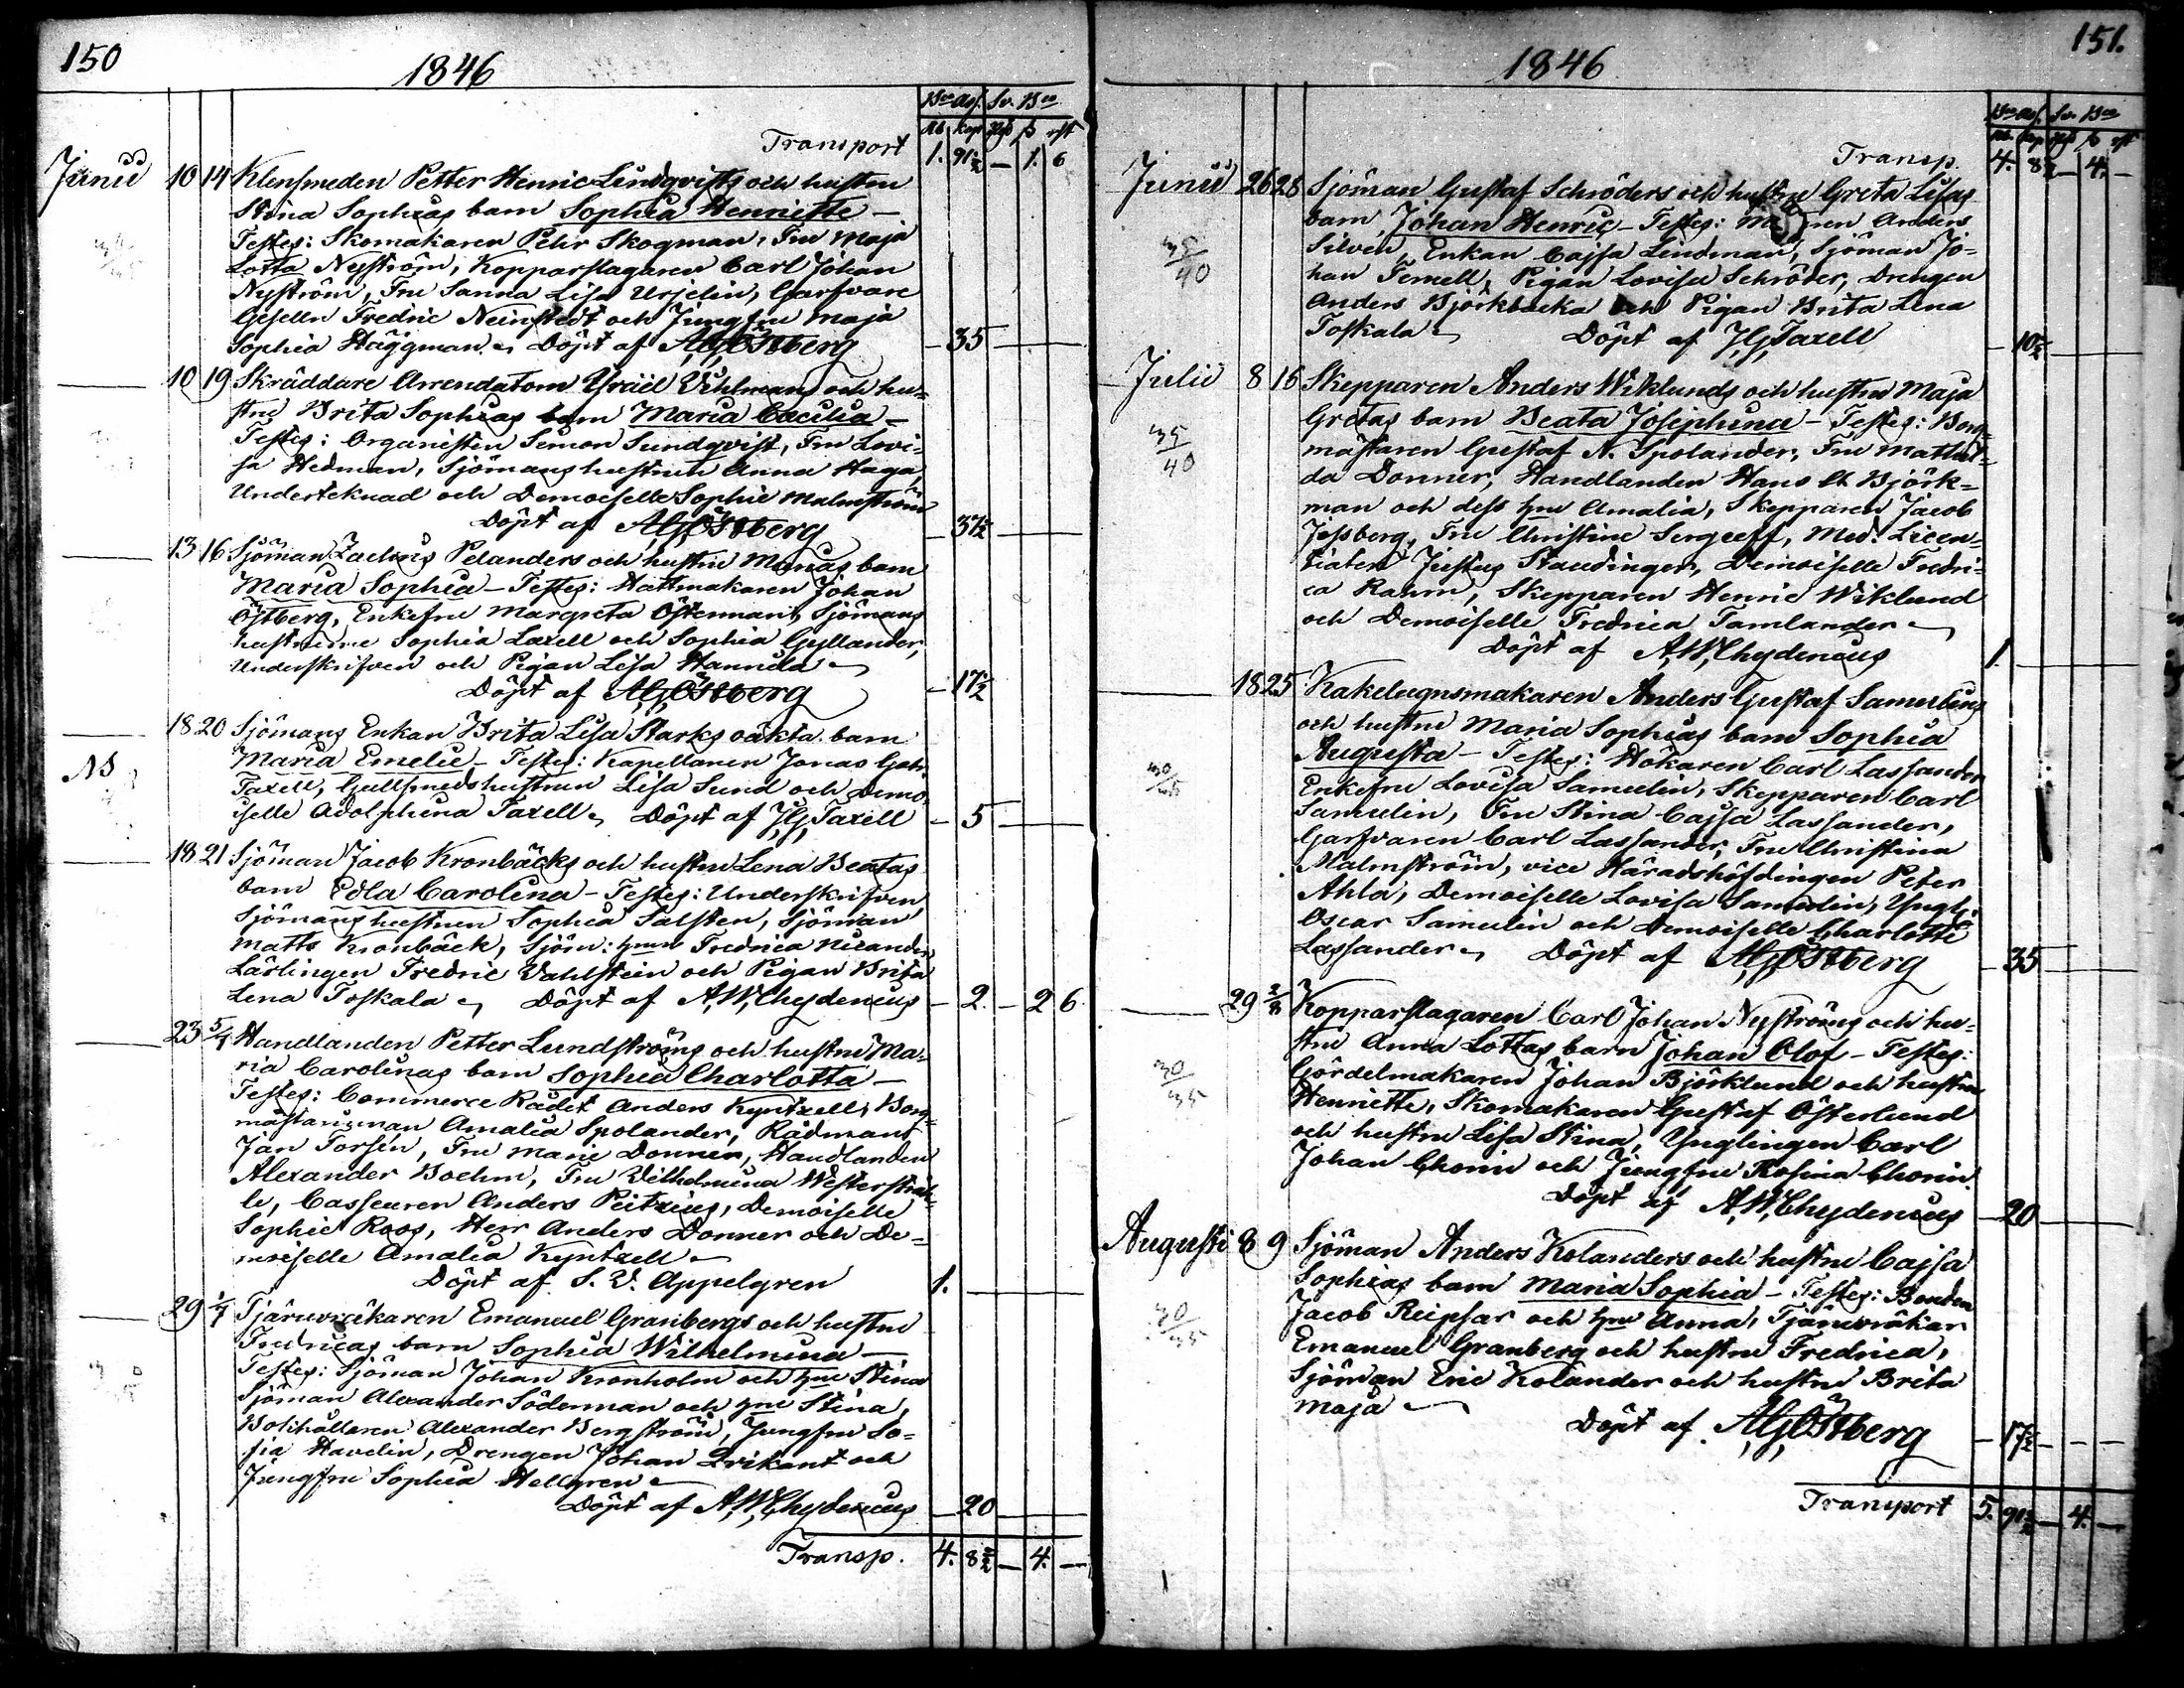 150
1846
Bco Ass. Sv. Bco
Rb. Kop. Rd. ß rst
Transport 1. 91½ — 1. 6
Junii 10 14 Klensmeden Petter Henric Lindqvists och hustru
Stina Sophias barn Sophia Henriette —
Testes: Skomakaren Petr Skogman, Fru Maja
Lotta Nyström, Kopparslagaren Carl Johan
Nyström, Fru Sanna Lisa Urjelin, Garfvare
Gesellen Fredric Neinstedt och Jungfru Maja
Sophia Häggman. Döpt af A.G. Östberg — 35 —
10 19 Skräddare Arrendatorn Israël Uhlmans och hu-
stru Brita Sophias barn Maria Cæcilia —
Testes: Organisten Simon Sundqvist, Fru Lovi-
sa Hedman, Sjömans hustrun Anna Haga,
Underteknad och Demoiselle Sophie Malmström
Döpt af A.G. Östberg — 37½ —
13 16 Sjöman Zachris Pelanders och hustru Marias barn
Maria Sophia — Testes: Hattmakaren Johan
Östberg, Enkefru Margreta Österman, Sjömans
hustrurne Sophia Laxell och Sophia Gyllander,
Underskrifven och Pigan Lisa Hannula
Döpt af A.G. Östberg — 17½ —
18 20 Sjömans Enkan Brita Lisa Starks oäkta barn
Maria Emelie — Testes: Kapellanen Jonas Gabr.
Taxell, Gullsmedshustrun Lisa Sund och Demo-
iselle Adolphina Taxell. Döpt af J.G. Taxell — 5 —
18 21 Sjöman Jacob Kronbäcks och hustru Lena Beatas
barn Edla Carolina — Testes: Underskrifven
Sjömans hustrun Sophia Salsten, Sjöman
Matts Kronbäck, Sjöm: hnn Fredrica Nicander
Lärlingen Fredric Dahlstein och Pigan Brita
Lena Toskala. Döpt af A.W. Chydenius — 2. — 2 6
23 5/7 Handlanden Petter Lundströms och hustru Ma-
ria Carolinas barn Sophia Charlotta —
Testes: Commerce Rådet Anders Kyntzell, Borg-
Amalia Spolander, Rådman
Jan Torsén, Fru Marie Donner, Handlanden
Alexander Boehm, Fru Wilhelmina Westerstråh-
le, Casseuren Anders Peitzius, Demoiselle
Sophie Roos, Herr Anders Donner och De-
moiselle Amalia Kyntzell
Döpt af S. V. Appelgren 1. —
29 1/7 Tjäruvräkaren Emanuel Granbergs och hustru
Fredricas barn Sophia Wilhelmina —
Testes: Sjöman Johan Kronholm och hru Stina
Sjöman Alexander Söderman och hru Stina,
Bokhållaren Alexander Bergström, Jungfru So-
fia Havelin, Drengen Johan Qvikant och
Jungfru Sophia Hellgren
Döpt af A.W. Chydenius — 20 —
Transp. 4. 8½ — 4. —
151.
1846
Bco Ass. Sv. Bco
Transp. 4. 8½ — 4. —
Junii 26 28 Sjöman Gustaf Schröders och hustru Greta Lisas
35/40
barn Johan Henric — Testes: Anders
Silvén, Enkan Cajsa Lindman, Sjöman Jo-
han Fernell, Pigan Lovisa Schröder, Drengen
Anders Björkbacka och Pigan Brita Lena
Toskala Döpt af J.G. Taxell — 10½ —
Julii 8 16 Skepparen Anders Wiklunds och hustru Maja
35/40
Gretas barn Beata Josephina — Testes: Borg-
mästaren Gustaf A. Spolander, Fru Mathil-
da Donner, Handlanden Hans H. Björk-
man och dess hru Amalia, Skepparen Jacob
Jessberg, Fru Christine Sergeeff, Med. Licen-
tiaten Justus Staudinger, Demoiselle Fredri-
ca Rahm, Skepparen Henric Wiklund
och Demoiselle Fredrica Tamlander
Döpt af A.W. Chydenius 1. —
18 25 Kakelugnsmakaren Anders Gustaf Samulins
30/35
och hustru Maria Sophias barn Sophia
Augusta — Testes: Hökaren Carl Lassander
Enkefru Lovisa Samulin, Skepparen Carl
Samulin, Fru Stina Cajsa Lassander,
Garfvaren Carl Lassander, Fru Christina
Malmström, vice Häradshöfdingen Peter
Ahla, Demoiselle Lovisa Samulin, Yngl:
Oscar Samulin och Demoiselle Charlotte
Lassander Döpt af A.G. Östberg — 35 —
29 2/8 Kopparslagaren Carl Johan Nyströms och hu-
30/35
stru Anna Lottas barn Johan Olof — Testes:
Gördelmakaren Johan Björklund och hustru
Henriette, Skomakaren Gustaf Österlund
och hustru Lisa Stina, Ynglingen Carl
Johan Chorin och Jungfru Rosina Chorin.
Döpt af A.W. Chydenius — 20 —
Augusti 8 9 Sjöman Anders Kolanders och hustru Cajsa
30/35
Sophias barn Maria Sophia — Testes: Bonden
Jacob Reipsar och hru Anna, Tjäruvräkar
Emanuel Granberg och hustru Fredrica,
Sjöman Eric Kolander och hustru Brita
Maja
Döpt af A.G. Östberg — 17½ — — —
Transport 5. 91½ — 4. —